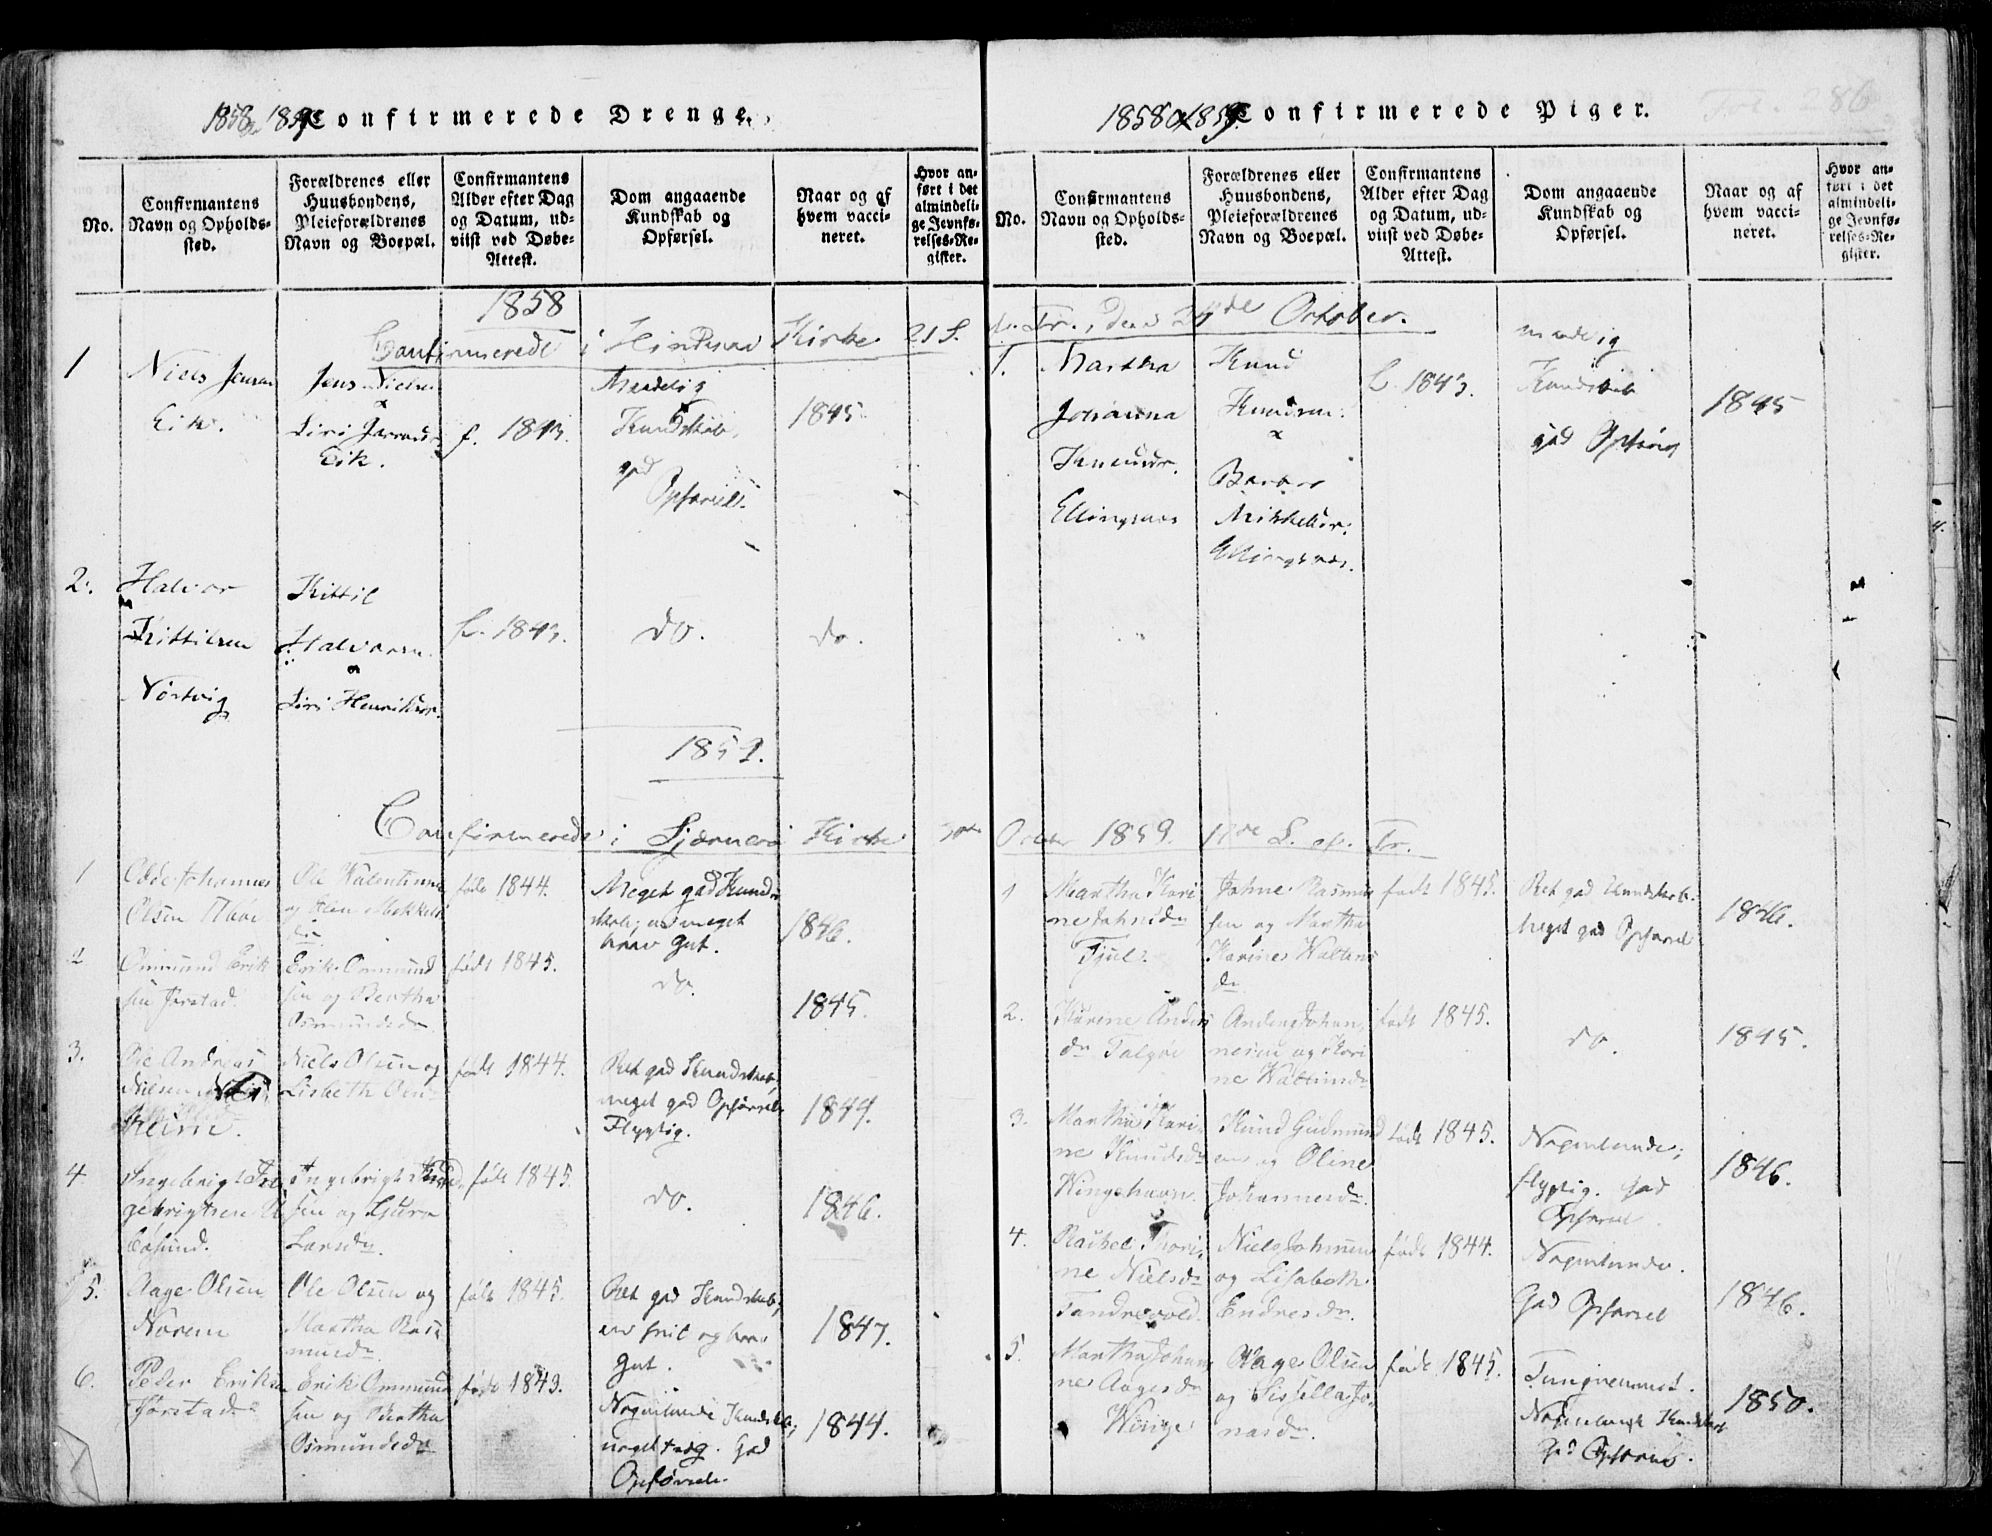 1858 1859 Confirmerede Drenge.
No.
Confirmantens
Navn og Opholds-
sted.
Forældrenes eller
Huusbondens,
Pleieforældrenes
Navn og Boepæl.
Confirmantens
Alder efter Dag
og Datum, ud-
viist ved Døbe-
Attest.
Dom angaaende
Kundskab og
Opførsel.
Naar og af
hvem vacci-
neret.
Hvor an-
ført i det
almindeli-
ge Jevnfø-
relses-Re-
gister.
1858
Confirmerede i Hindraa Kirke 21 S.
1
Niels Jensen
Eik.
Jens Nielsen
Siri
Eik.
f. 1843.
Maadelig
Kundskab,
god
Opførsel.
1845
2.
Halvor
Kittilsen
Nørtvig
Kittil
Halvorsen
og
Siri Henriksdr.
f. 1843.
do.
do.
1859.
Confirmerede i Sjærnerø Kirke
1
Odde Johannes
Olsen
Ole Walentinsen
og
dr
føde 1844.
Meget god Kund-
skab; en meget
brav Gut.
1846.
2
Ommund Erik
sen Jørstad.
Erik Ommund
sen og Bertha
Osmundsdr
født 1845.
do.
1845.
3.
Ole Andreas
Nilsen
Niels Olsen og
Lisbeth
født 1844.
Ret god Kundskab,
meget god Opførsel.
Flygtig.
1844.
4
Ingebrigt In
gebrigtsen
Ingebrigt
sen og
Larsdr
født 1845.
do.
1846.
5.
Aage Olsen
Norem
Ole Olsen og
Martha Ras
musdr
født 1845.
Ret god Kundskab,
en
Gut.
1847.
6.
Peder Eriksen
Jørstad
Erik Ommund
sen og Bertha
Osmundsdr
født 1843.
Nogenlunde Kundskab,
noget træg. God
Opførsel.
1844.
1858 og 1859. Confirmerede Piger.
Fol. 286
No.
Confirmantens
Navn og Opholds-
sted.
Forældrenes eller
Huusbondens,
Pleieforældrenes
Navn og Boepæl.
Confirmantens
Alder efter Dag
og Datum, ud-
viist ved Døbe-
Attest.
Dom angaaende
Kundskab og
Opførsel.
Naar og af
hvem vacci-
neret.
Hvor an-
ført i det
almindeli-
ge Jevnfø-
relses-Re-
gister.
Tr., den 24de October.
1.
Martha
Johanna
Knudsdr.
Ellingsnes
Knud
Knudsen
Barbro
Mikkelsdr.
Ellingsnes.
f. 1843.
maadelig
Kundskab
god Opførsel
1845
October 1859. S. ef. Tr.
1
Martha Kari
ne
Fjul.
Johne Rasmus
sen og Martha
Karine
dr
født 1845.
Ret god Kundskab.
Meget god Opførsel
1846.
2.
Karine Anders
dr Talgøe
Anders Johan
nesen og Kari
ne
født 1845.
do.
1845.
3.
Martha Kari
ne Knudsdr
Wingehavn.
Knud Gudmund
sen og Oline
Johannesdr.
født 1845.
Nogenlunde;
flygtig. God
Opførsel.
1846.
4.
Rachel Thori
ne Nielsdr
Tandrevold.
Niels Johnsen
og Lisabeth
Endresdr.
født 1844.
Nogenlunde.
God Opførsel
1846.
5.
Martha Johan
ne Aagesdr
Winge
Aage Olsen
og Sissella Jo
nasdr.
født 1845.
Tungnemmet.
Nogenlunde Kundskab
God Opførsel.
1850.